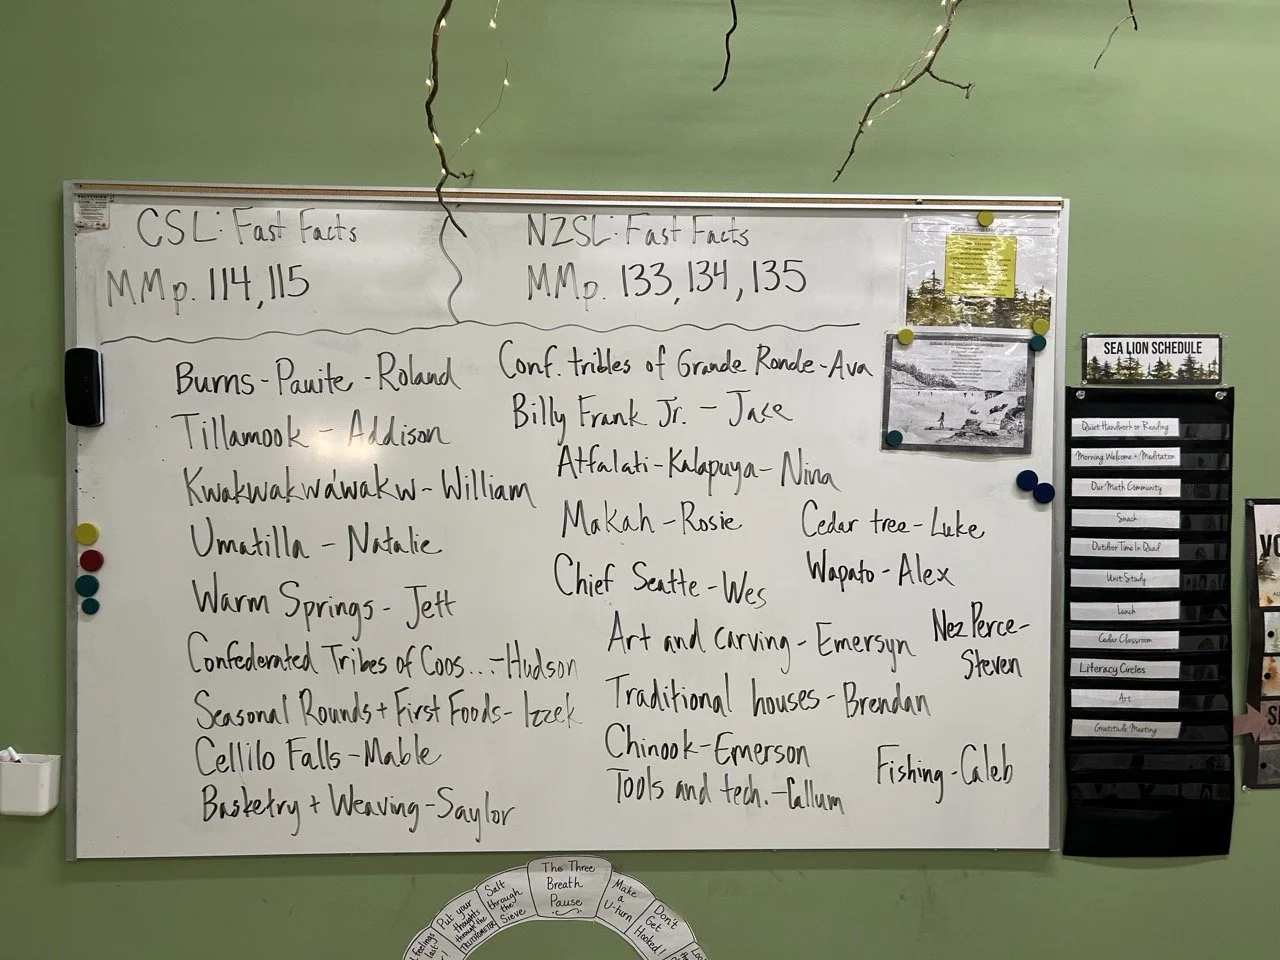 CSL: Fast Facts
MMp. 114, 115
NZSL: Fast Facts
MMp. 133, 134, 135
Burns-Pauite - Roland
Tillamook - Addison
Kwakwakwáwakw - William
Umatilla - Natalie
Warm Springs - Jett
Confederated Tribes of Coos... - Hudson
Seasonal Rounds + First Foods - Izzek
Cellilo Falls - Mable
Basketry + Weaving - Saylor
Conf. tribles of Grande Ronde - Ava
Billy Frank Jr. - Jace
Atfalati-Kalapuya - Nina
Makah - Rosie
Chief Seatte - Wes
Art and carving - Emersyn
Traditional houses - Brendan
Chinook - Emerson
Tools and tech. - Callum
Cedar tree - Luke
Wapato - Alex
Nez Perce -
Steven
Fishing - Caleb
SEA LION SCHEDULE
Quiet Handwork or Reading
Morning Welcome + Meditation
Our Math Community
Snack
Outdoor Time In Quad
Unit Study
Lunch
Cedar Classroom
Literacy Circles
Art
Gratitude Meeting
Put your
thoughts
through the
TRUTHOMETER
Salt
through
the
Sieve
The Three
Breath
Pause
Make
a
U-turn
Don't
Get
Hooked!